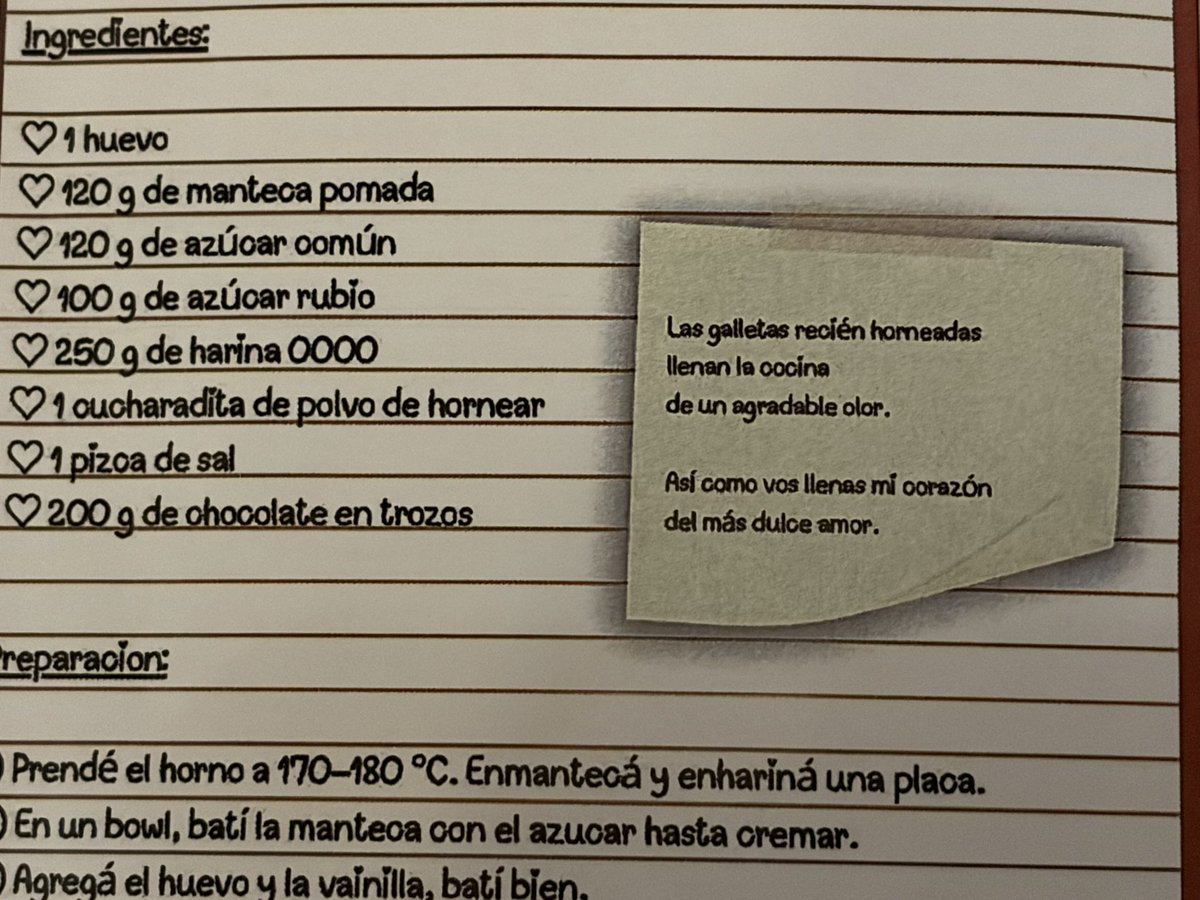 Ingredientes:
♡ 1 huevo
♡ 120 g de manteca pomada
♡ 120 g de azúcar común
♡ 100 g de azúcar rubio
♡ 250 g de harina 0000
♡ 1 cucharadita de polvo de hornear
♡ 1 pizca de sal
♡ 200 g de chocolate en trozos
Las galletas recién horneadas
llenan la cocina
de un agradable olor.
Así como vos llenas mi corazón
del más dulce amor.
Preparacion:
) Prendé el horno a 170–180 °C. Enmantecá y enhariná una placa.
) En un bowl, batí la manteca con el azucar hasta cremar.
) Agregá el huevo y la vainilla, batí bien.